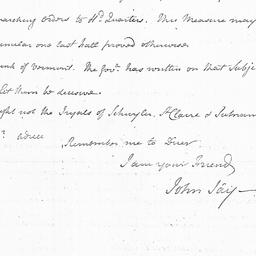 marching orders to Hd. Quarters. This Measure may
one last half proved otherwise.
of vermont. The Govr. has written on that Subject
let them be decisive.
not the Tryals of Schuyler, St. Claire & Putnam
Remember me to Duer.
I am your Friend
John Jay